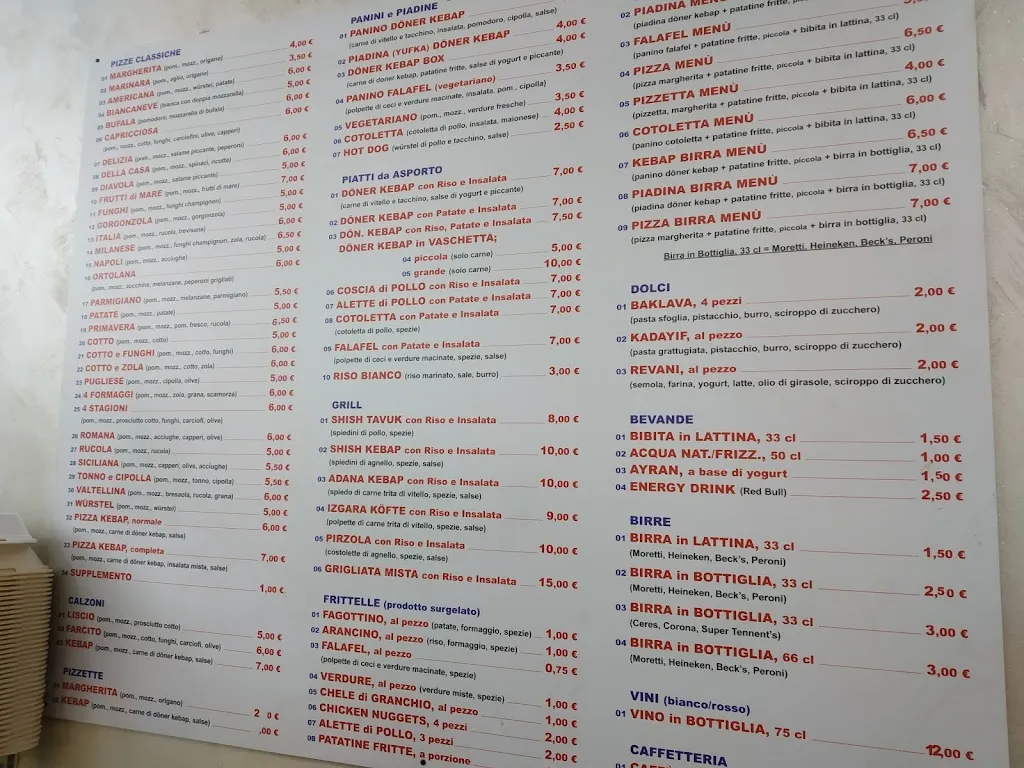 PIZZE CLASSICHE
01 MARGHERITA (pom., mozz., origano) 4,00 €
02 MARINARA (pom., aglio, origano) 3,50 €
03 AMERICANA (pom., mozz., würstel, patate) 6,00 €
04 BIANCANEVE (bianca con doppia mozzarella) 5,00 €
05 BUFALA (pomodoro, mozzarella di bufala) 6,00 €
06 CAPRICCIOSA 6,00 €
(pom., mozz., cotto, funghi, carciofini, olive, capperi)
07 DELIZIA (pom., mozz., salame piccante, peperoni) 6,00 €
08 DELLA CASA (pom., mozz., spinaci, ricotta) 6,00 €
09 DIAVOLA (pom., mozz., salame piccante) 5,00 €
10 FRUTTI di MARE (pom., mozz., frutti di mare) 7,00 €
11 FUNGHI (pom., mozz., funghi champignon) 5,00 €
12 GORGONZOLA (pom., mozz., gorgonzola) 5,00 €
13 ITALIA (pom., mozz., rucola, trevisana) 6,00 €
14 MILANESE (pom., mozz., funghi champignon, zola, rucola) 6,50 €
15 NAPOLI (pom., mozz., acciughe) 5,00 €
16 ORTOLANA 6,00 €
(pom., mozz., zucchine, melanzane, peperoni grigliati)
17 PARMIGIANO (pom., mozz., melanzane, parmigiano) 5,50 €
18 PATATE (pom., mozz., patate) 5,00 €
19 PRIMAVERA (pom., mozz., pom. fresco, rucola) 6,50 €
20 COTTO (pom., mozz., cotto) 5,00 €
21 COTTO e FUNGHI (pom., mozz., cotto, funghi) 6,00 €
22 COTTO e ZOLA (pom., mozz., cotto, zola) 6,00 €
23 PUGLIESE (pom., mozz., cipolla, olive) 5,00 €
24 4 FORMAGGI (pom., mozz., zola, grana, scamorza) 6,00 €
25 4 STAGIONI 6,00 €
(pom., mozz., prosciutto cotto, funghi, carciofi, olive)
26 ROMANA (pom., mozz., acciughe, capperi, olive) 6,00 €
27 RUCOLA (pom., mozz., rucola) 5,00 €
28 SICILIANA (pom., mozz., capperi, olive, acciughe) 5,50 €
29 TONNO e CIPOLLA (pom., mozz., tonno, cipolla) 5,50 €
30 VALTELLINA (pom., mozz., bresaola, rucola, grana) 6,00 €
31 WÜRSTEL (pom., mozz., würstel) 5,00 €
32 PIZZA KEBAP, normale 6,00 €
(pom., mozz., carne di döner kebap, salse)
33 PIZZA KEBAP, completa 7,00 €
(pom., mozz., carne di döner kebap, insalata mista, salse)
34 SUPPLEMENTO 1,00 €
CALZONI
01 LISCIO (pom., mozz., prosciutto cotto) 5,00 €
02 FARCITO (pom., mozz., cotto, funghi, carciofi, olive) 6,00 €
03 KEBAP (pom., mozz., carne di döner kebap, salse) 7,00 €
PIZZETTE
01 MARGHERITA (pom., mozz., origano) 2 0 €
02 KEBAP (pom., mozz., carne di döner kebap, salse) ,00 €
PANINI e PIADINE
01 PANINO DÖNER KEBAP
(carne di vitello e tacchino, insalata, pomodoro, cipolla, salse)
02 PIADINA (YUFKA) DÖNER KEBAP 4,00 €
03 DÖNER KEBAP BOX 4,00 €
(carne di döner kebap, patatine fritte, salse di yogurt e piccante)
04 PANINO FALAFEL (vegetariano) 3,50 €
(polpette di ceci e verdure macinate, insalata, pom., cipolla)
05 VEGETARIANO (pom., mozz., verdure fresche) 3,50 €
06 COTOLETTA (cotoletta di pollo, insalata, maionese) 4,00 €
07 HOT DOG (würstel di pollo e tacchino, salse) 2,50 €
PIATTI da ASPORTO
01 DÖNER KEBAP con Riso e Insalata 7,00 €
(carne di vitello e tacchino, salse di yogurt e piccante)
02 DÖNER KEBAP con Patate e Insalata 7,00 €
03 DÖN. KEBAP con Riso, Patate e Insalata 7,50 €
DÖNER KEBAP in VASCHETTA;
04 piccola (solo carne) 5,00 €
05 grande (solo carne) 10,00 €
06 COSCIA di POLLO con Riso e Insalata 7,00 €
07 ALETTE di POLLO con Patate e Insalata 7,00 €
08 COTOLETTA con Patate e Insalata 7,00 €
(cotoletta di pollo, spezie)
09 FALAFEL con Patate e Insalata 7,00 €
(polpette di ceci e verdure macinate, spezie, salse)
10 RISO BIANCO (riso marinato, sale, burro) 3,00 €
GRILL
01 SHISH TAVUK con Riso e Insalata 8,00 €
(spiedini di pollo, spezie)
02 SHISH KEBAP con Riso e Insalata 10,00 €
(spiedini di agnello, spezie, salse)
03 ADANA KEBAP con Riso e Insalata 10,00 €
(spiedo di carne trita di vitello, spezie, salse)
04 IZGARA KÖFTE con Riso e Insalata 9,00 €
(polpette di carne trita di vitello, spezie, salse)
05 PIRZOLA con Riso e Insalata 10,00 €
(costolette di agnello, spezie, salse)
06 GRIGLIATA MISTA con Riso e Insalata 15,00 €
FRITTELLE (prodotto surgelato)
01 FAGOTTINO, al pezzo (patate, formaggio, spezie) 1,00 €
02 ARANCINO, al pezzo (riso, formaggio, spezie) 1,00 €
03 FALAFEL, al pezzo 0,75 €
(polpette di ceci e verdure macinate, spezie)
04 VERDURE, al pezzo (verdure miste, spezie) 1,00 €
05 CHELE di GRANCHIO, al pezzo 1,00 €
06 CHICKEN NUGGETS, 4 pezzi 2,00 €
07 ALETTE di POLLO, 3 pezzi 2,00 €
08 PATATINE FRITTE, a porzione 2,00 €
02 PIADINA MENÙ
(piadina döner kebap + patatine fritte, piccola + bibita in lattina, 33 cl)
03 FALAFEL MENÙ
(panino falafel + patatine fritte, piccola + bibita in lattina, 33 cl)
04 PIZZA MENÙ 6,50 €
(pizza margherita + patatine fritte, piccola + bibita in lattina, 33 cl)
05 PIZZETTA MENÙ 4,00 €
(pizzetta, margherita + patatine fritte, piccola + bibita in lattina, 33 cl)
06 COTOLETTA MENÙ 6,00 €
(panino cotoletta + patatine fritte, piccola + bibita in lattina, 33 cl)
07 KEBAP BIRRA MENÙ 6,50 €
(panino döner kebap + patatine fritte, piccola + birra in bottiglia, 33 cl)
08 PIADINA BIRRA MENÙ 7,00 €
(piadina döner kebap + patatine fritte, piccola + birra in bottiglia, 33 cl)
09 PIZZA BIRRA MENÙ 7,00 €
(pizza margherita + patatine fritte, piccola + birra in bottiglia, 33 cl)
Birra in Bottiglia, 33 cl = Moretti, Heineken, Beck's, Peroni
DOLCI
01 BAKLAVA, 4 pezzi 2,00 €
(pasta sfoglia, pistacchio, burro, sciroppo di zucchero)
02 KADAYIF, al pezzo 2,00 €
(pasta grattugiata, pistacchio, burro, sciroppo di zucchero)
03 REVANI, al pezzo 2,00 €
(semola, farina, yogurt, latte, olio di girasole, sciroppo di zucchero)
BEVANDE
01 BIBITA in LATTINA, 33 cl 1,50 €
02 ACQUA NAT./FRIZZ., 50 cl 1,00 €
03 AYRAN, a base di yogurt 1,50 €
04 ENERGY DRINK (Red Bull) 2,50 €
BIRRE
01 BIRRA in LATTINA, 33 cl 1,50 €
(Moretti, Heineken, Beck's, Peroni)
02 BIRRA in BOTTIGLIA, 33 cl 2,50 €
(Moretti, Heineken, Beck's, Peroni)
03 BIRRA in BOTTIGLIA, 33 cl 3,00 €
(Ceres, Corona, Super Tennent's)
04 BIRRA in BOTTIGLIA, 66 cl 3,00 €
(Moretti, Heineken, Beck's, Peroni)
VINI (bianco/rosso)
01 VINO in BOTTIGLIA, 75 cl 12,00 €
CAFFETTERIA